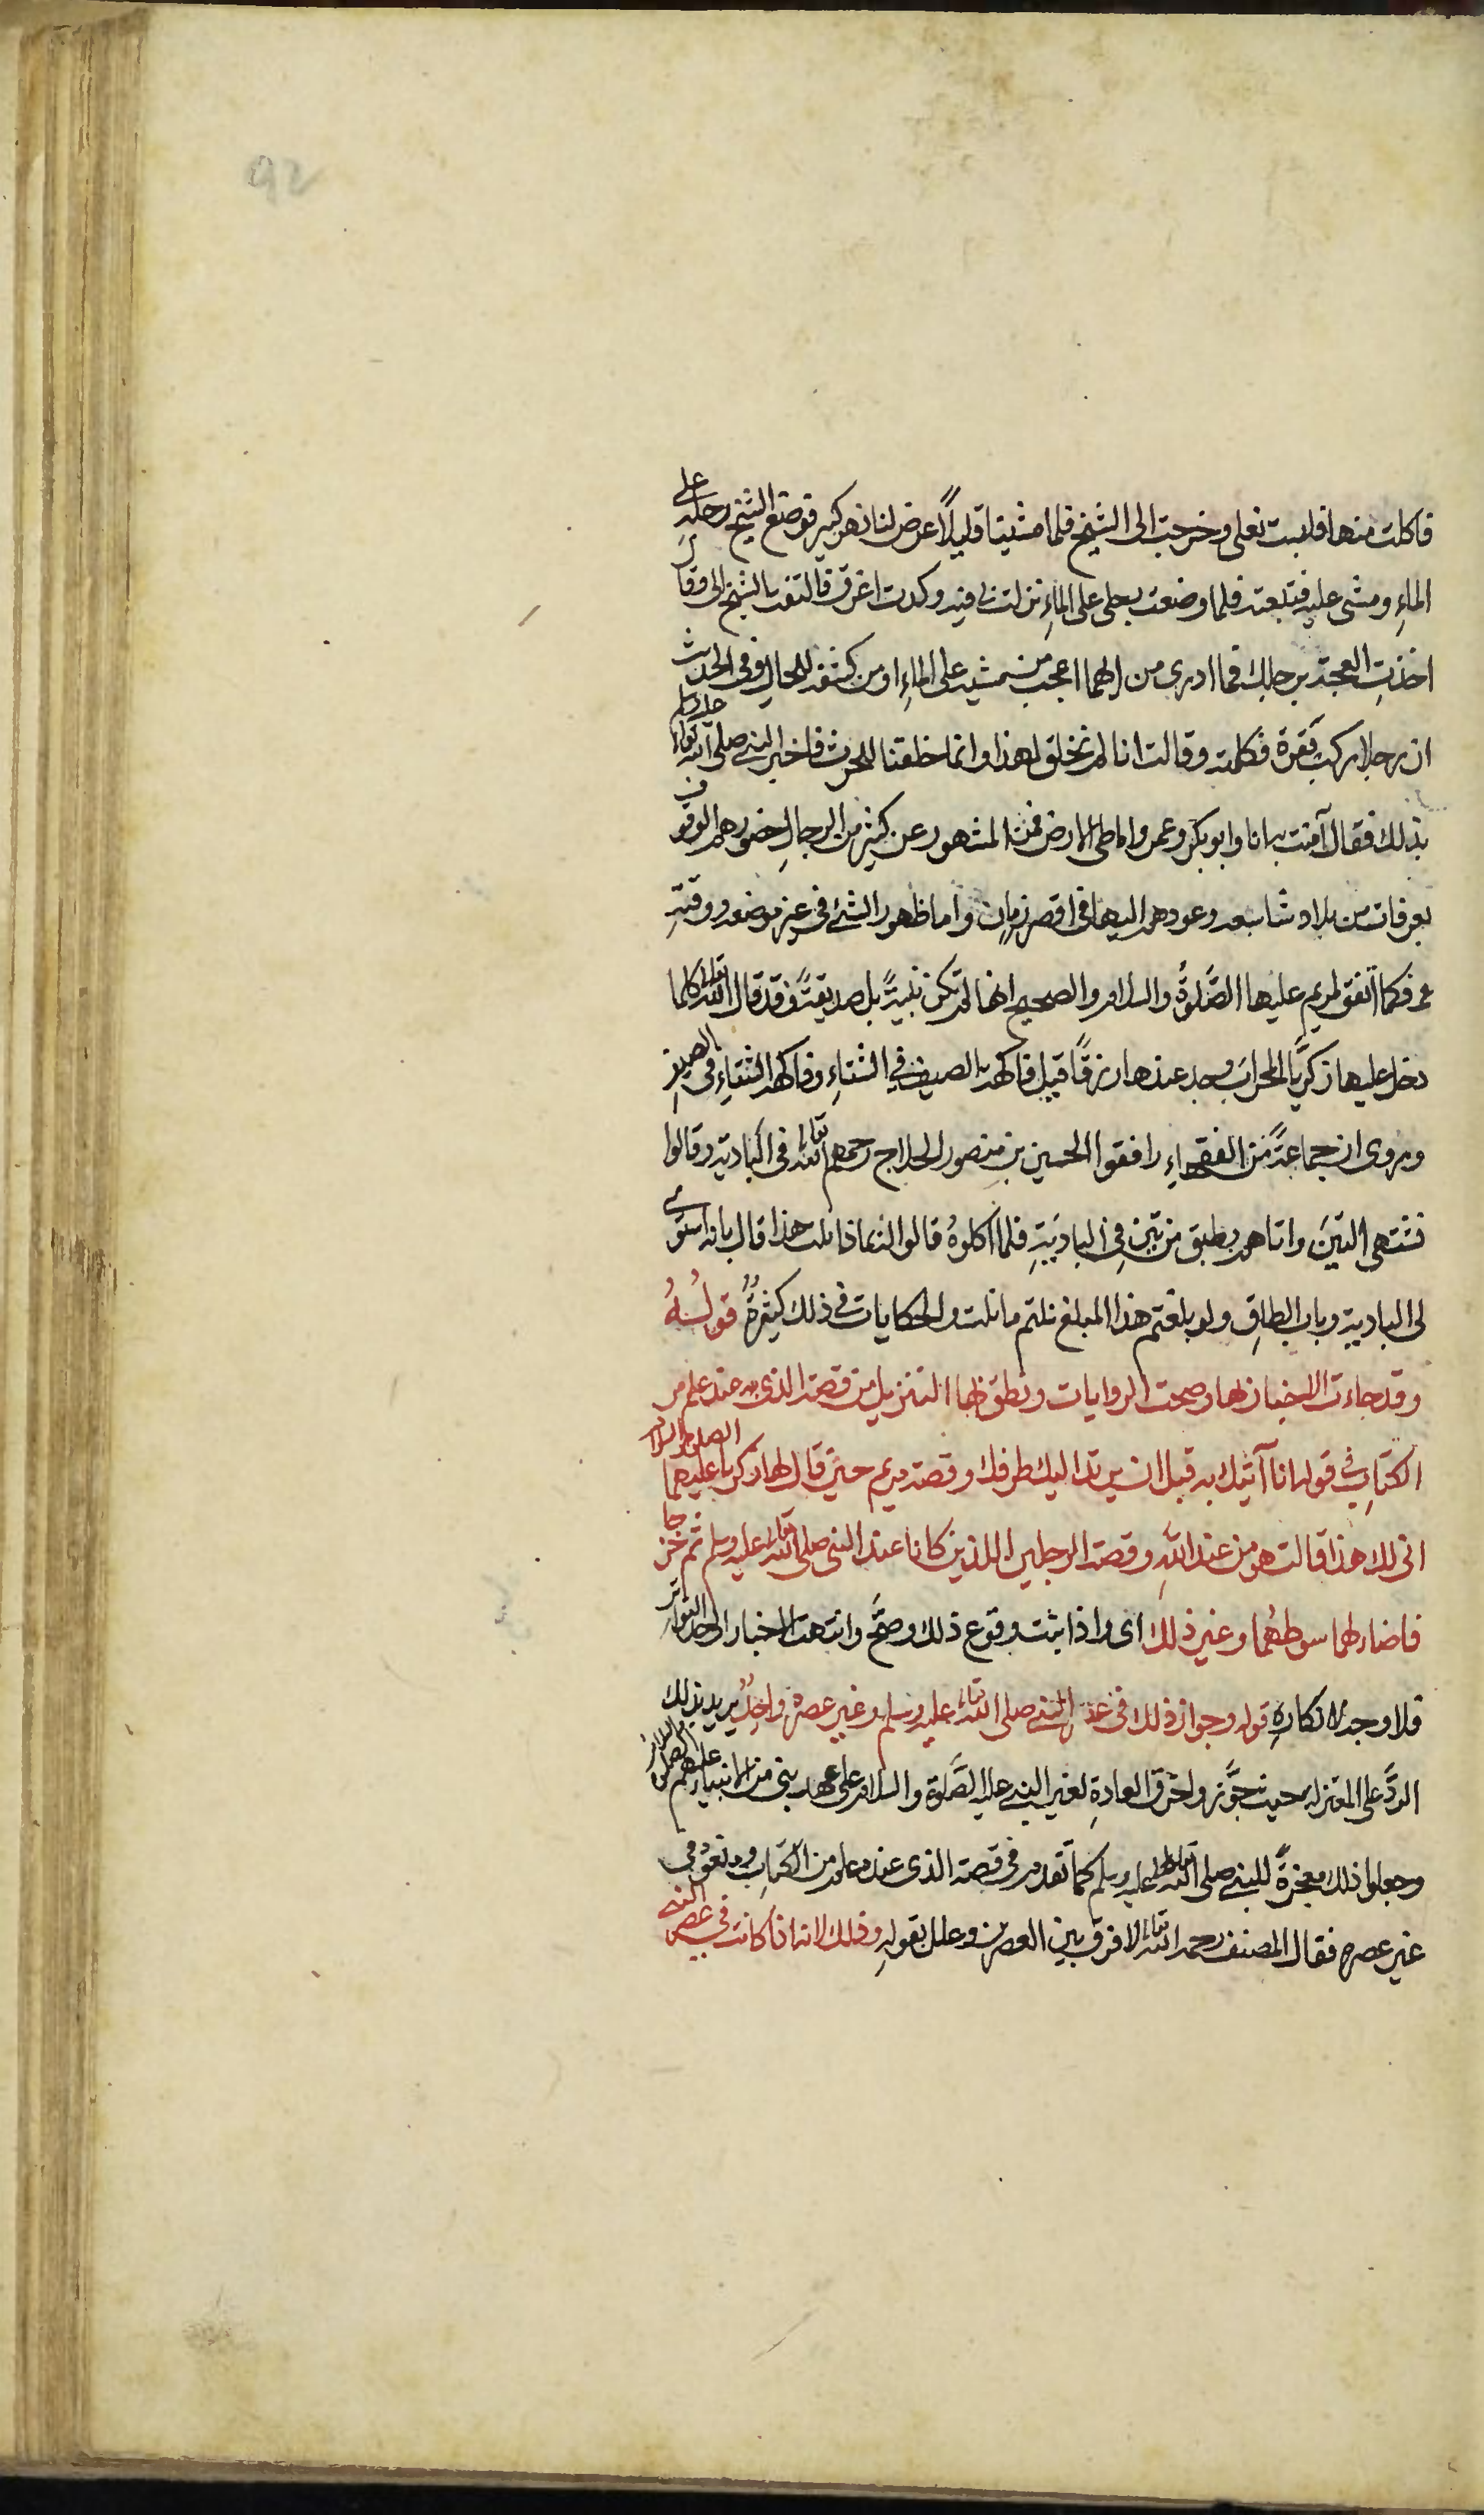 92
فاكلت منها فلبست نعلى وخرجت الى الشيخ فلما مشينا قليلاً عرض لنا نهر كبير فوضع الشيخ رجله على
الماءِ ومشى عليه فتبعته فلما وضعت رجلى على الماءِ نزلت فيه وكدت اغرق فالتفت الشيخ الى وقال
اخذت العجة برجلك فما ادرى من ايهما اعجب من مشيه على الماءِ او من كشفه للحال وفى الحديث
ان رجلا ركب بقرة فكلمته وقالت انا لم نخلق لهذا وانما خلقنا للحرث فاخبر النبي صلى الله تعالى عليه وسلم
بذلك فقال آمنت به انا وابو بكر وعمر واما طى الارض فمن المشهور عن كثير من الرجال حضورهم الوقوف
بعرفات من بلاد شاسعه وعودهم اليها فى اقصر زمان واما ظهور الشئ فى غير موضعه ووقته
فكما اتفق لمريم عليها الصَّلوةُ والسلام والصحيح انها لم تكن نبيةً بل صديقةً وقد قال الله تعالى كلما
دخل عليها زكريَّا المحرابَ وجد عندها رزقًا قيل فاكهة الصيف فى الشتاءِ وفاكهة الشتاءِ فى الصيفِ
ويروى ان جماعةً من الفقراءِ رافقوا الحسين بن منصور الحلاج رحمهم الله تعالى فى البادية وقالوا
نشتهى التين واتاهم بطبق من تين فِى الباديَةِ فلما اكلوهُ قالوا له بماذا نلت هذا قال بانه استوى
لى البادية وباب الطاقِ ولو بلغتم هذا المبلغ نلتم ما نلت والحكايات فى ذلك كثيرةٌ قولُهُ
وقد جاءت الاخبار بها وصحت الروايات ونطق بها التنزيل من قصة الذى عنده علم من
الكتابِ فى قوله انا آتيك به قبل ان يرتد اليك طرفك وقصة مريم حين قال لها زكريا عليهما الصلوة والسلام
انى لك هذا قالت هو من عند اللهِ وقصة الرجلين اللذين كانا عند النبى صلى الله تعالى عليه وسلم ثم خرجا
فاضاء لهما سوطهُما وغير ذلك اى واذا ثبت وقوع ذلك وصحَّ وانتهت الاخبار الى حد التواتر
فلا وجه لانكارِهِ قوله وجواز ذلك فى عهد النبي صلى الله تعالى عليه وسلم وغير عصره واحدٌ يريد بذلك
الردَّ على المعتزله حيث جوَّزوا خرق العادةِ لغير النبي عليه الصَّلوة والسلام على عهد نبي من الانبياء عليهم الصلوة والسلام
وجعلوا ذلك معجزةً للنبي صلى الله تعالى عليه وسلم كما تقدم فى قصة الذى عنده علم من الكتابِ ومنعوه فى
غير عصره فقال المصنف رحمه الله تعالى لا فرق بين العصرين وعلل بقولهِ وذلك لانه اذا كانت فى عصر النبي